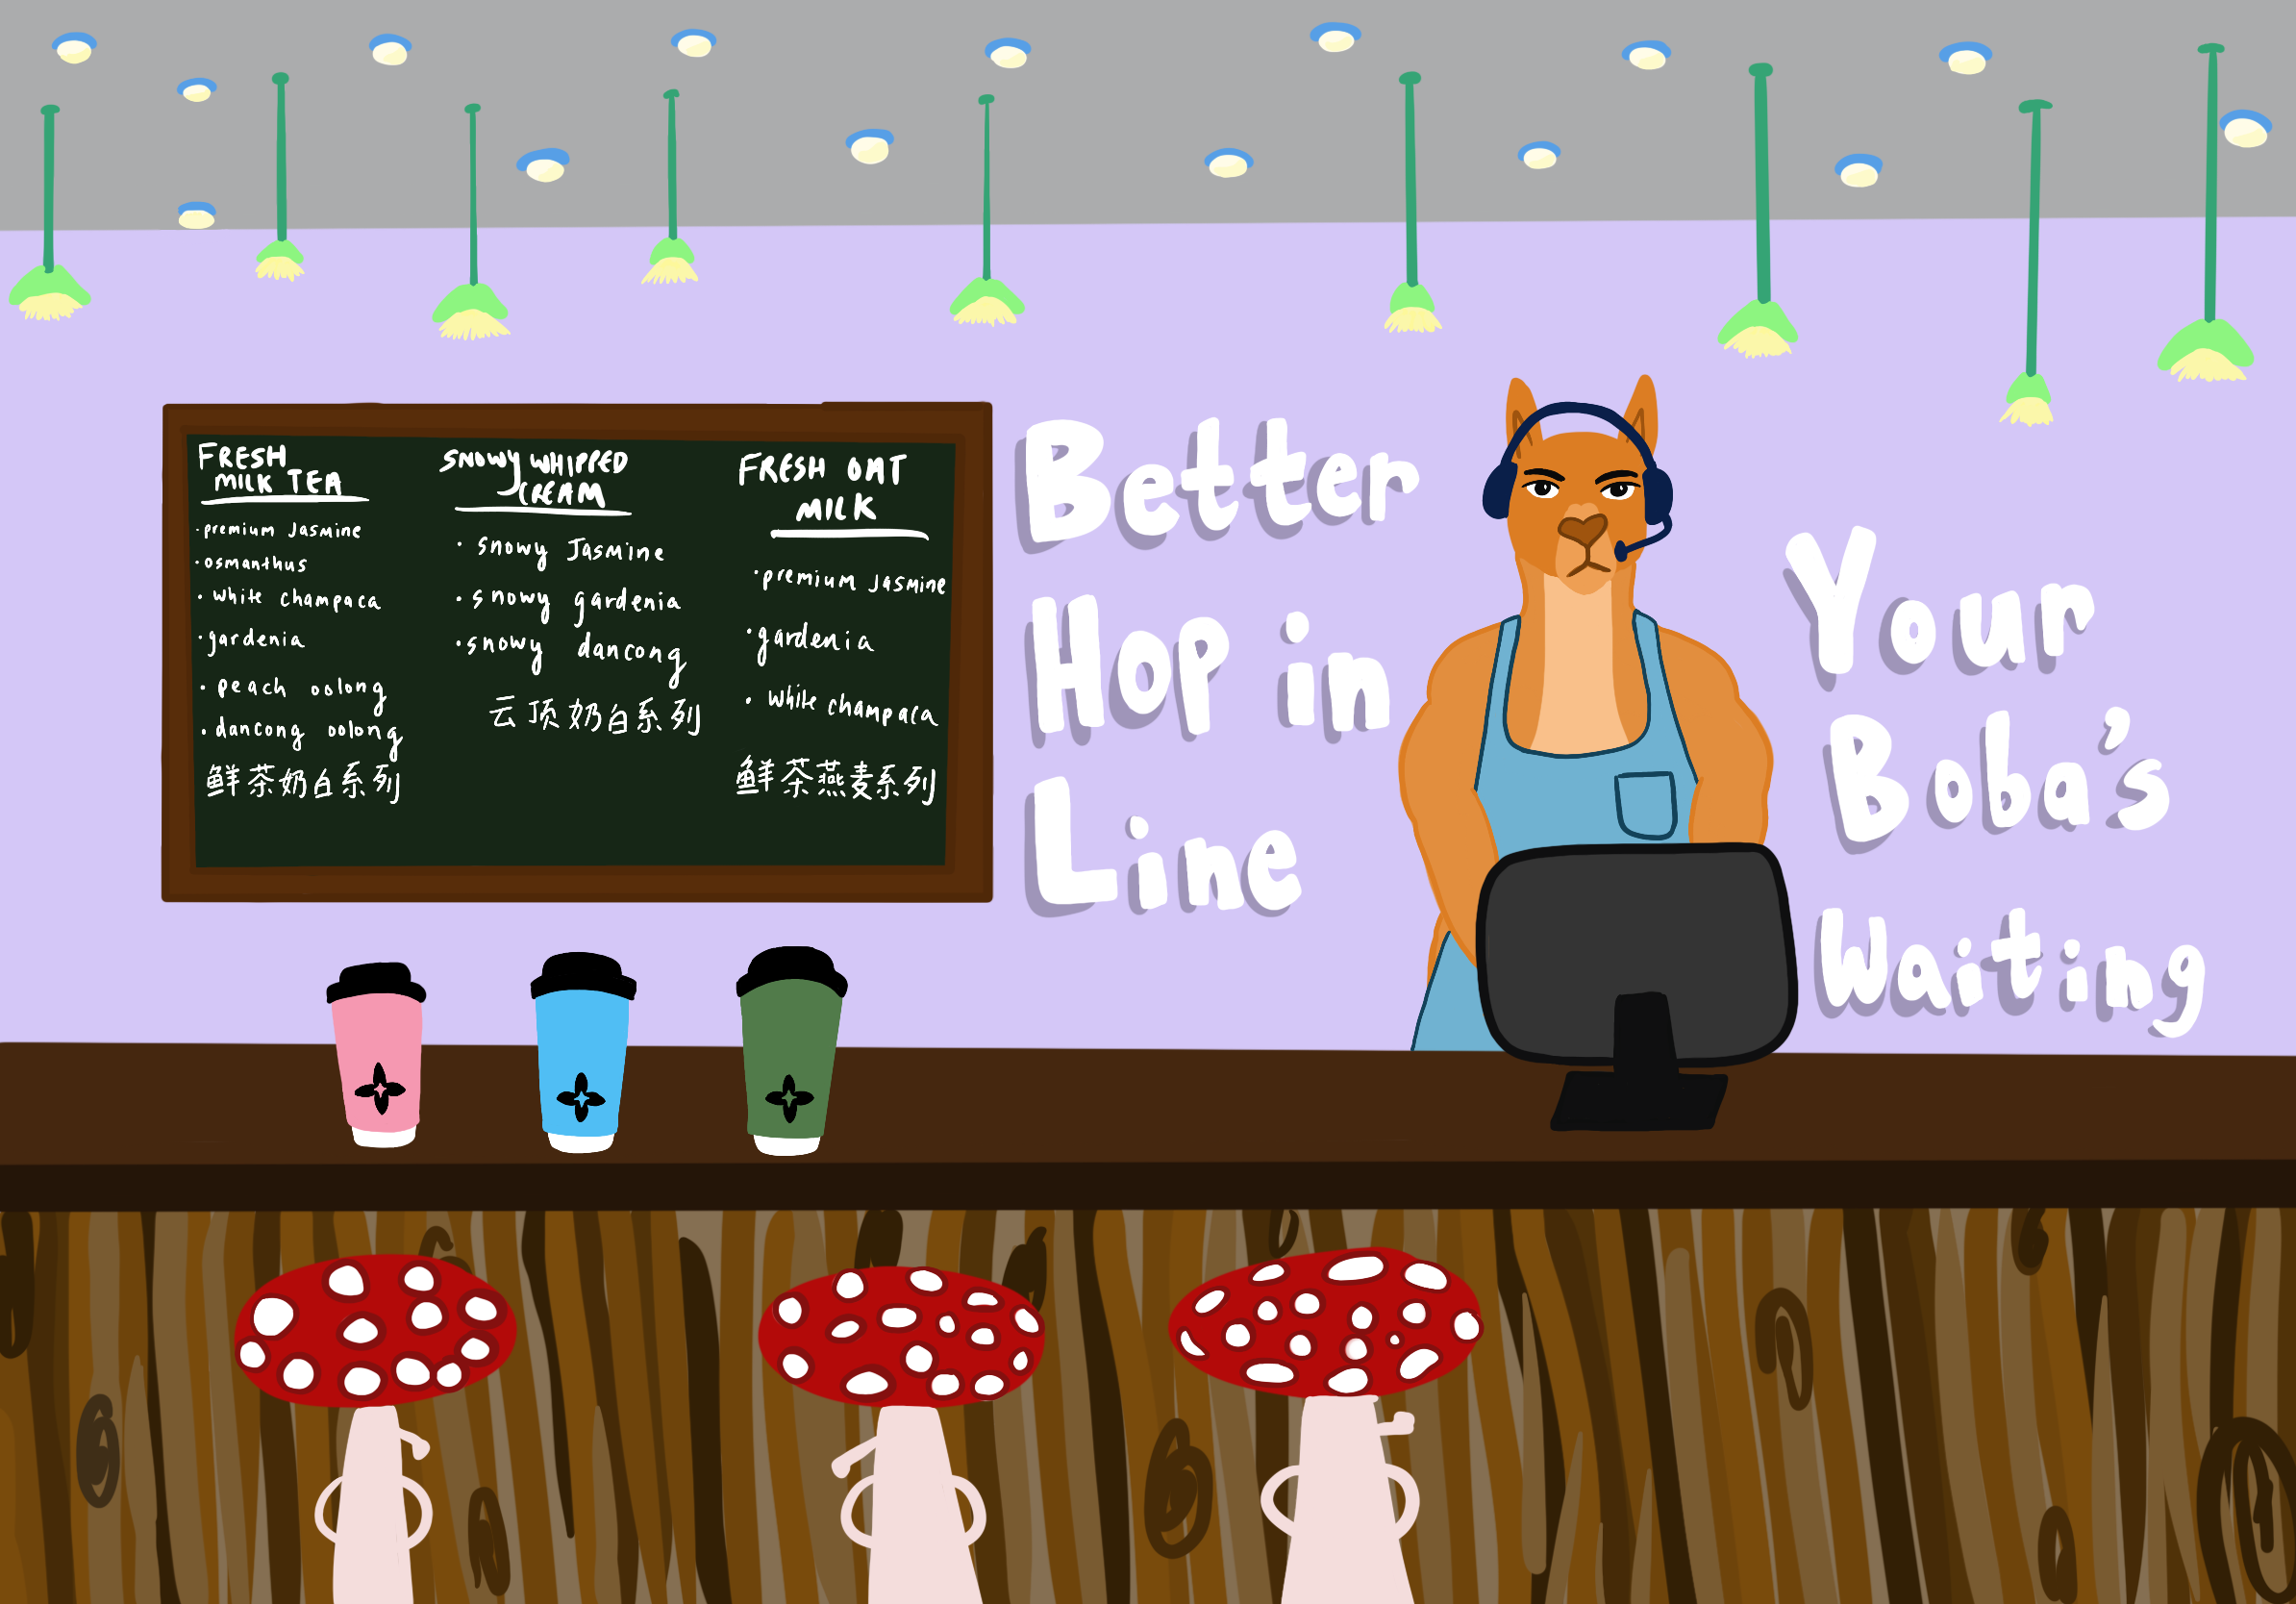 FRESH
MILK TEA
·premium Jasmine
·osmanthus
·white champaca
·gardenia
·peach oolong
·dancong oolong
鲜茶奶白系列
SNOWY WHIPPED
CREAM
·snowy Jasmine
·snowy gardenia
·snowy dancong
云顶奶白系列
FRESH OAT
MILK
·premium Jasmine
·gardenia
·white champaca
鲜茶燕麦系列
Better
Hop in
Line
Your
Boba's
Waiting